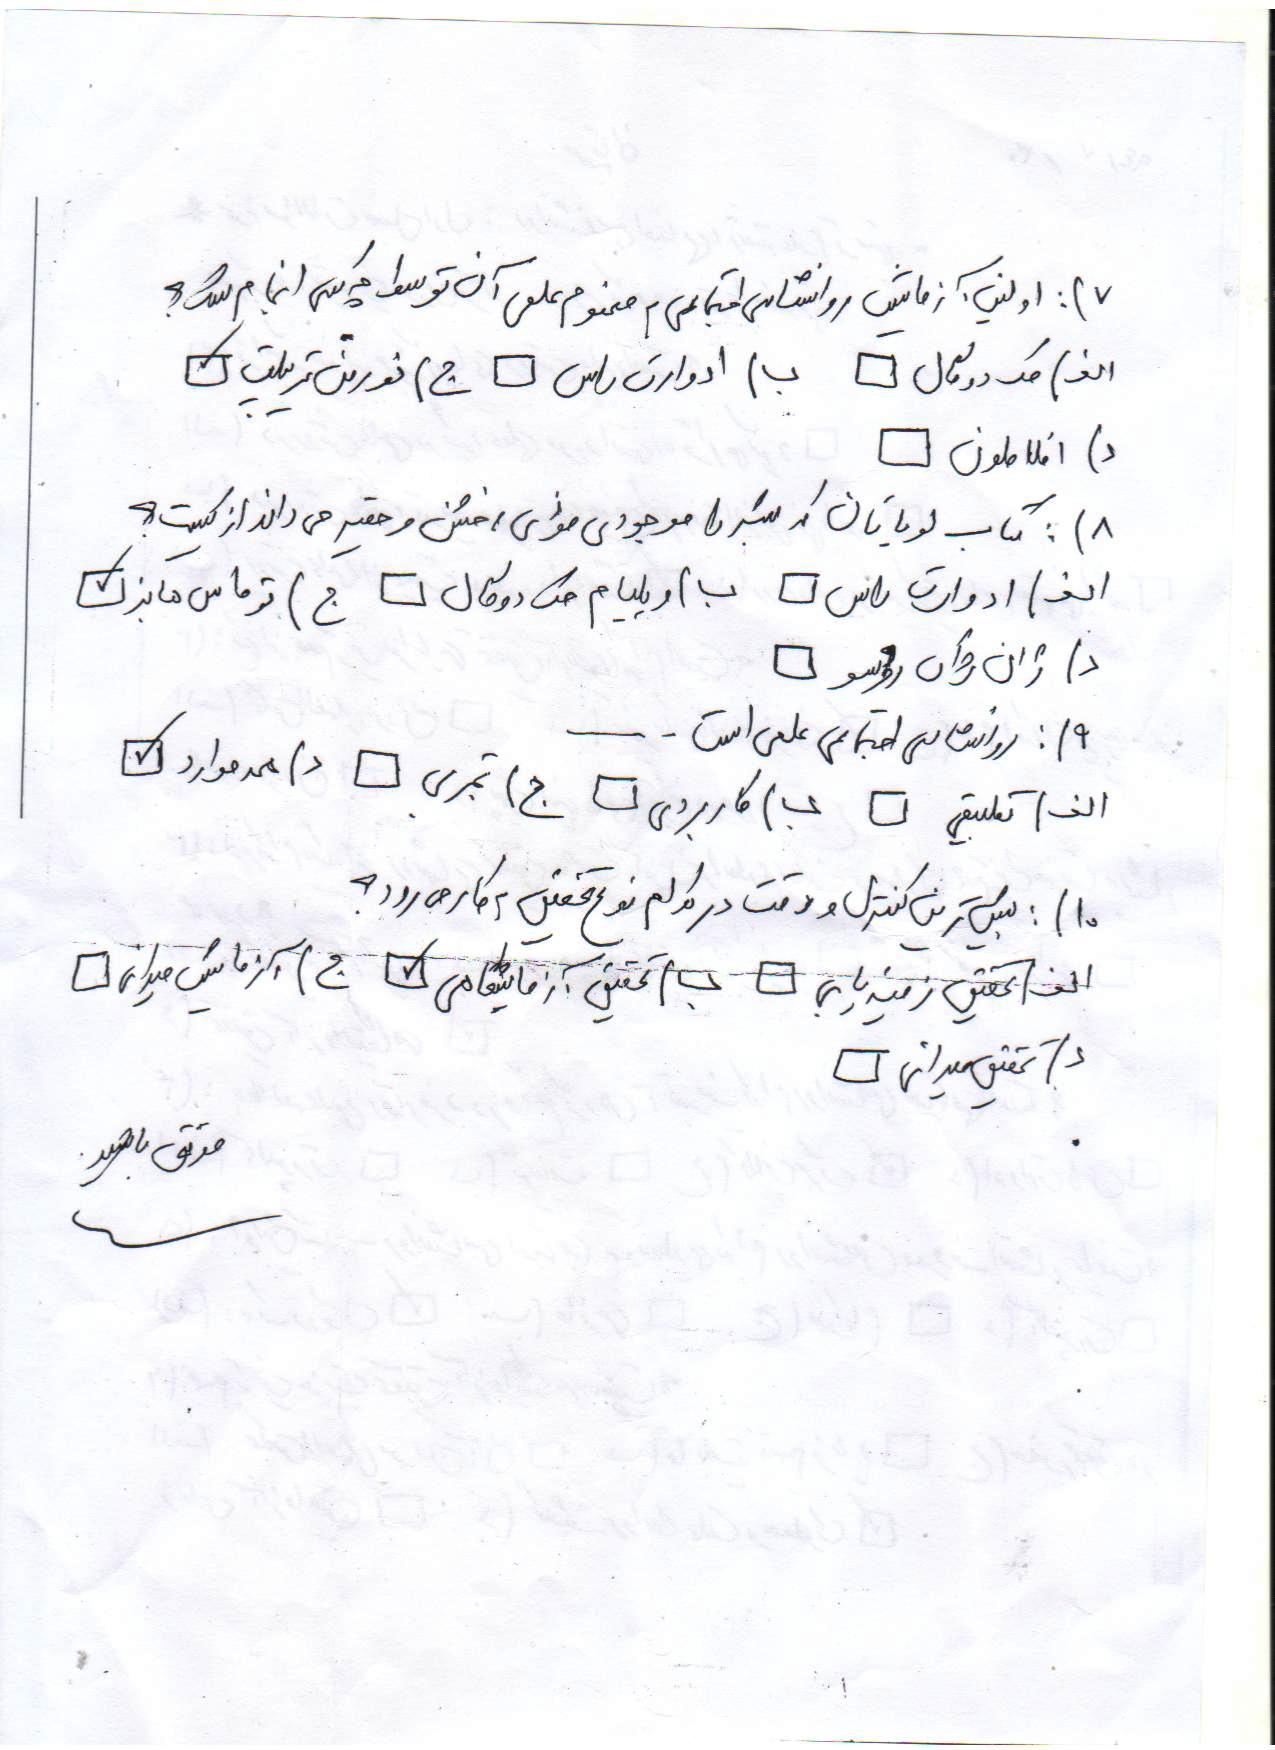 ۷): اولین آزمایش روانشناسی اجتماعی به مفهوم علمی آن توسط چه کسی انجام شد؟
الف) مک دوگال ☐ ب) ادوارد راس ☐ ج) نورمن تریپلیت ☑
د) افلاطون ☐
۸): کتاب لویاتان که بشر را موجودی موذی، خشن و حقیر می داند از کیست؟
الف) ادوارد راس ☐ ب) ویلیام مک دوگال ☐ ج) توماس هابز ☑
د) ژان ژاک روسو ☐
۹): روانشناسی اجتماعی علمی است ----
الف) تطبیقی ☐ ب) کاربردی ☐ ج) تجربی ☐ د) همه موارد ☑
۱۰): بیش ترین کنترل و دقت در کدام نوع تحقیق به کار می رود؟
الف) تحقیق زمینه یابی ☐ ب) تحقیق آزمایشگاهی ☑ ج) آزمایش میدانی ☐
د) تحقیق میدانی ☐
موفق باشید